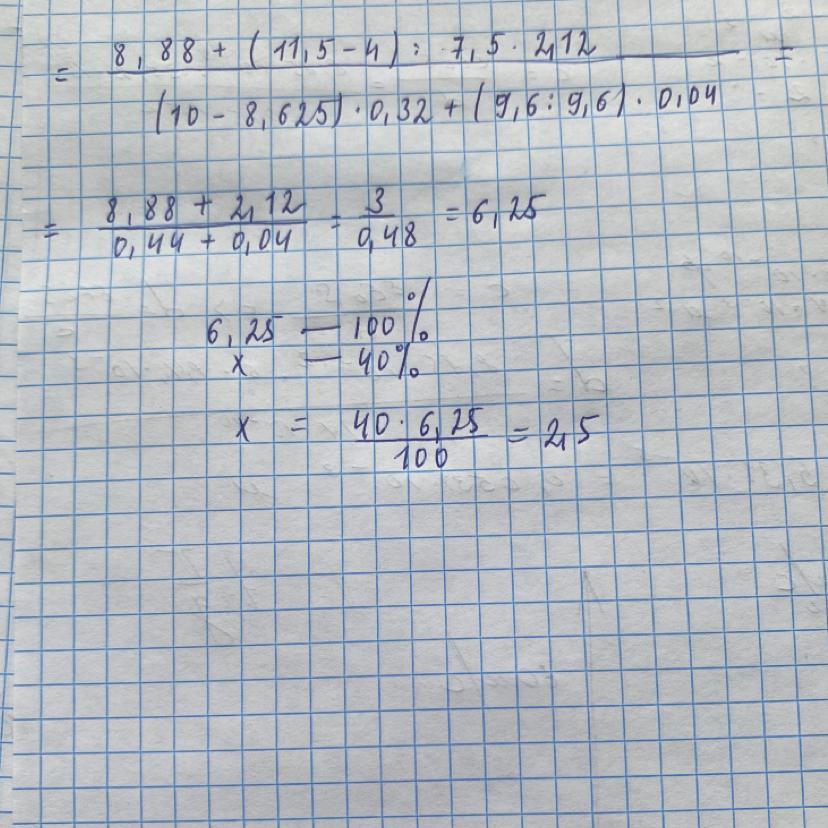 = (8,88 + (11,5 - 4) : 7,5 · 2,12) / ((10 - 8,625) · 0,32 + (9,6 : 9,6) · 0,04) =
= (8,88 + 2,12) / (0,44 + 0,04) = 3 / 0,48 = 6,25
6,25 — 100%
x — 40%
x = (40 · 6,25) / 100 = 2,5